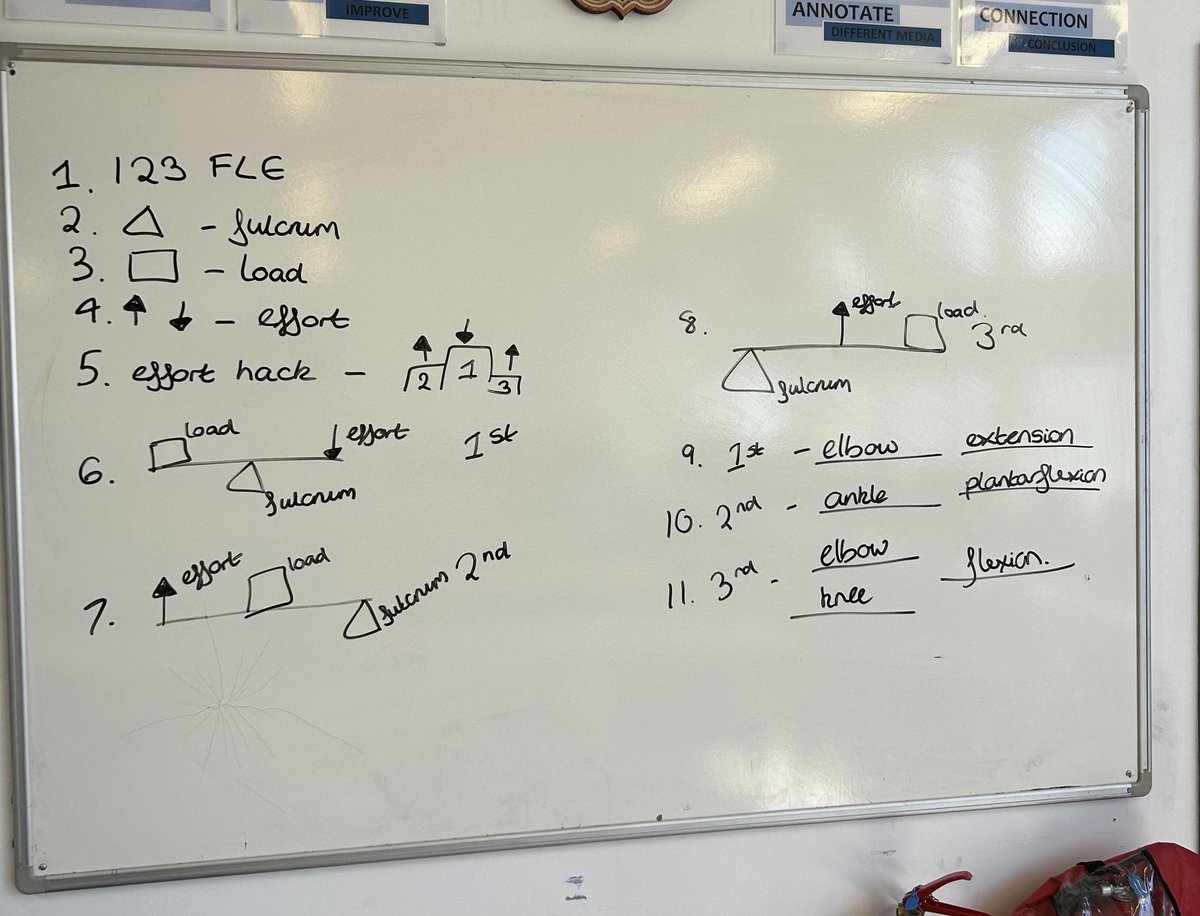 IMPROVE
ANNOTATE
DIFFERENT MEDIA
CONNECTION
CONCLUSION
1. 123 FLE
2. - fulcrum
3. - load
4. - effort
5. effort hack - 2 1 3
6. load effort 1st
fulcrum
7. effort load fulcrum 2nd
8. effort load. 3rd
fulcrum
9. 1st - elbow extension
10. 2nd - ankle plantarflexion
11. 3rd - elbow flexion.
knee